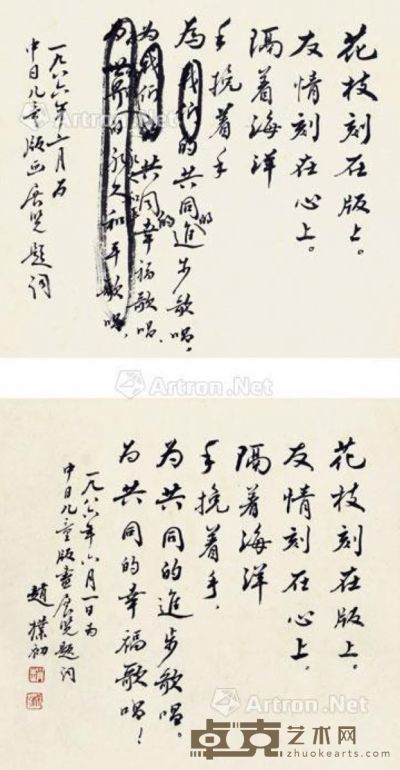 花枝刻在版上。
友情刻在心上。
隔着海洋
手挽着手
为我们的共同的进步歌唱，
为我们的共同的幸福歌唱，
为世界的永久和平歌唱，
一九八六年六月为
中日儿童版画展览题词
花枝刻在版上。
友情刻在心上。
隔着海洋
手挽着手，
为共同的进步歌唱。
为共同的幸福歌唱！
一九八六年六月一日为
中日儿童版画展览题词
趙樸初
Artron.Net
Artron.Net
Artron.Net
Artron.Net
卓克艺术网
www.zhuokearts.com